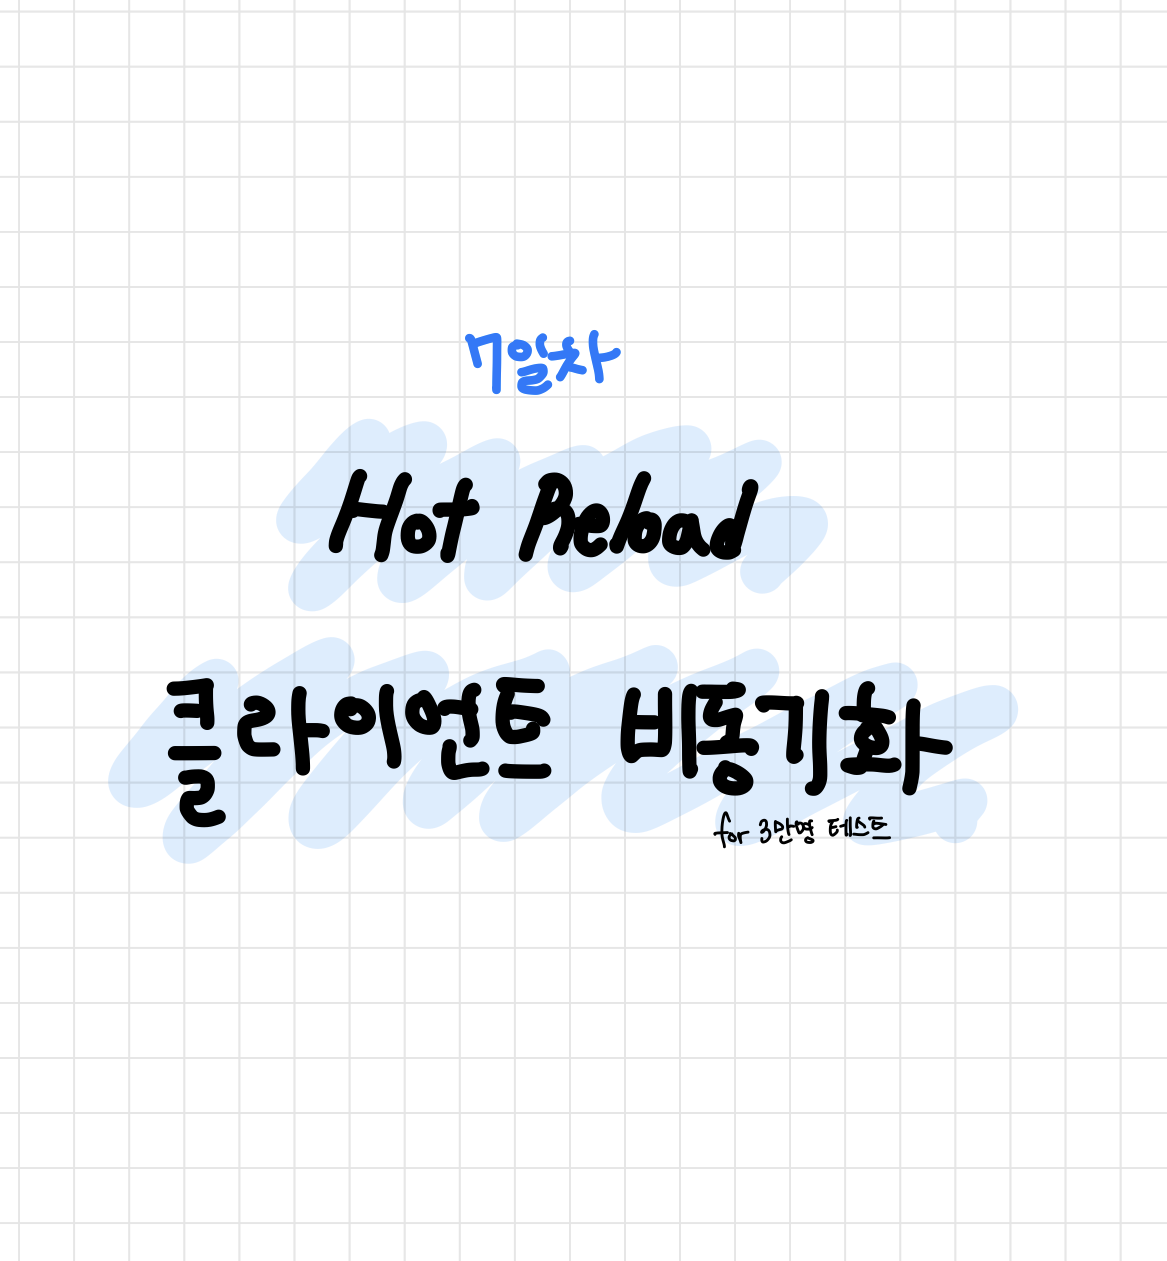 7일차
Hot Reload
클라이언트 비동기화
for 3만명 테스트